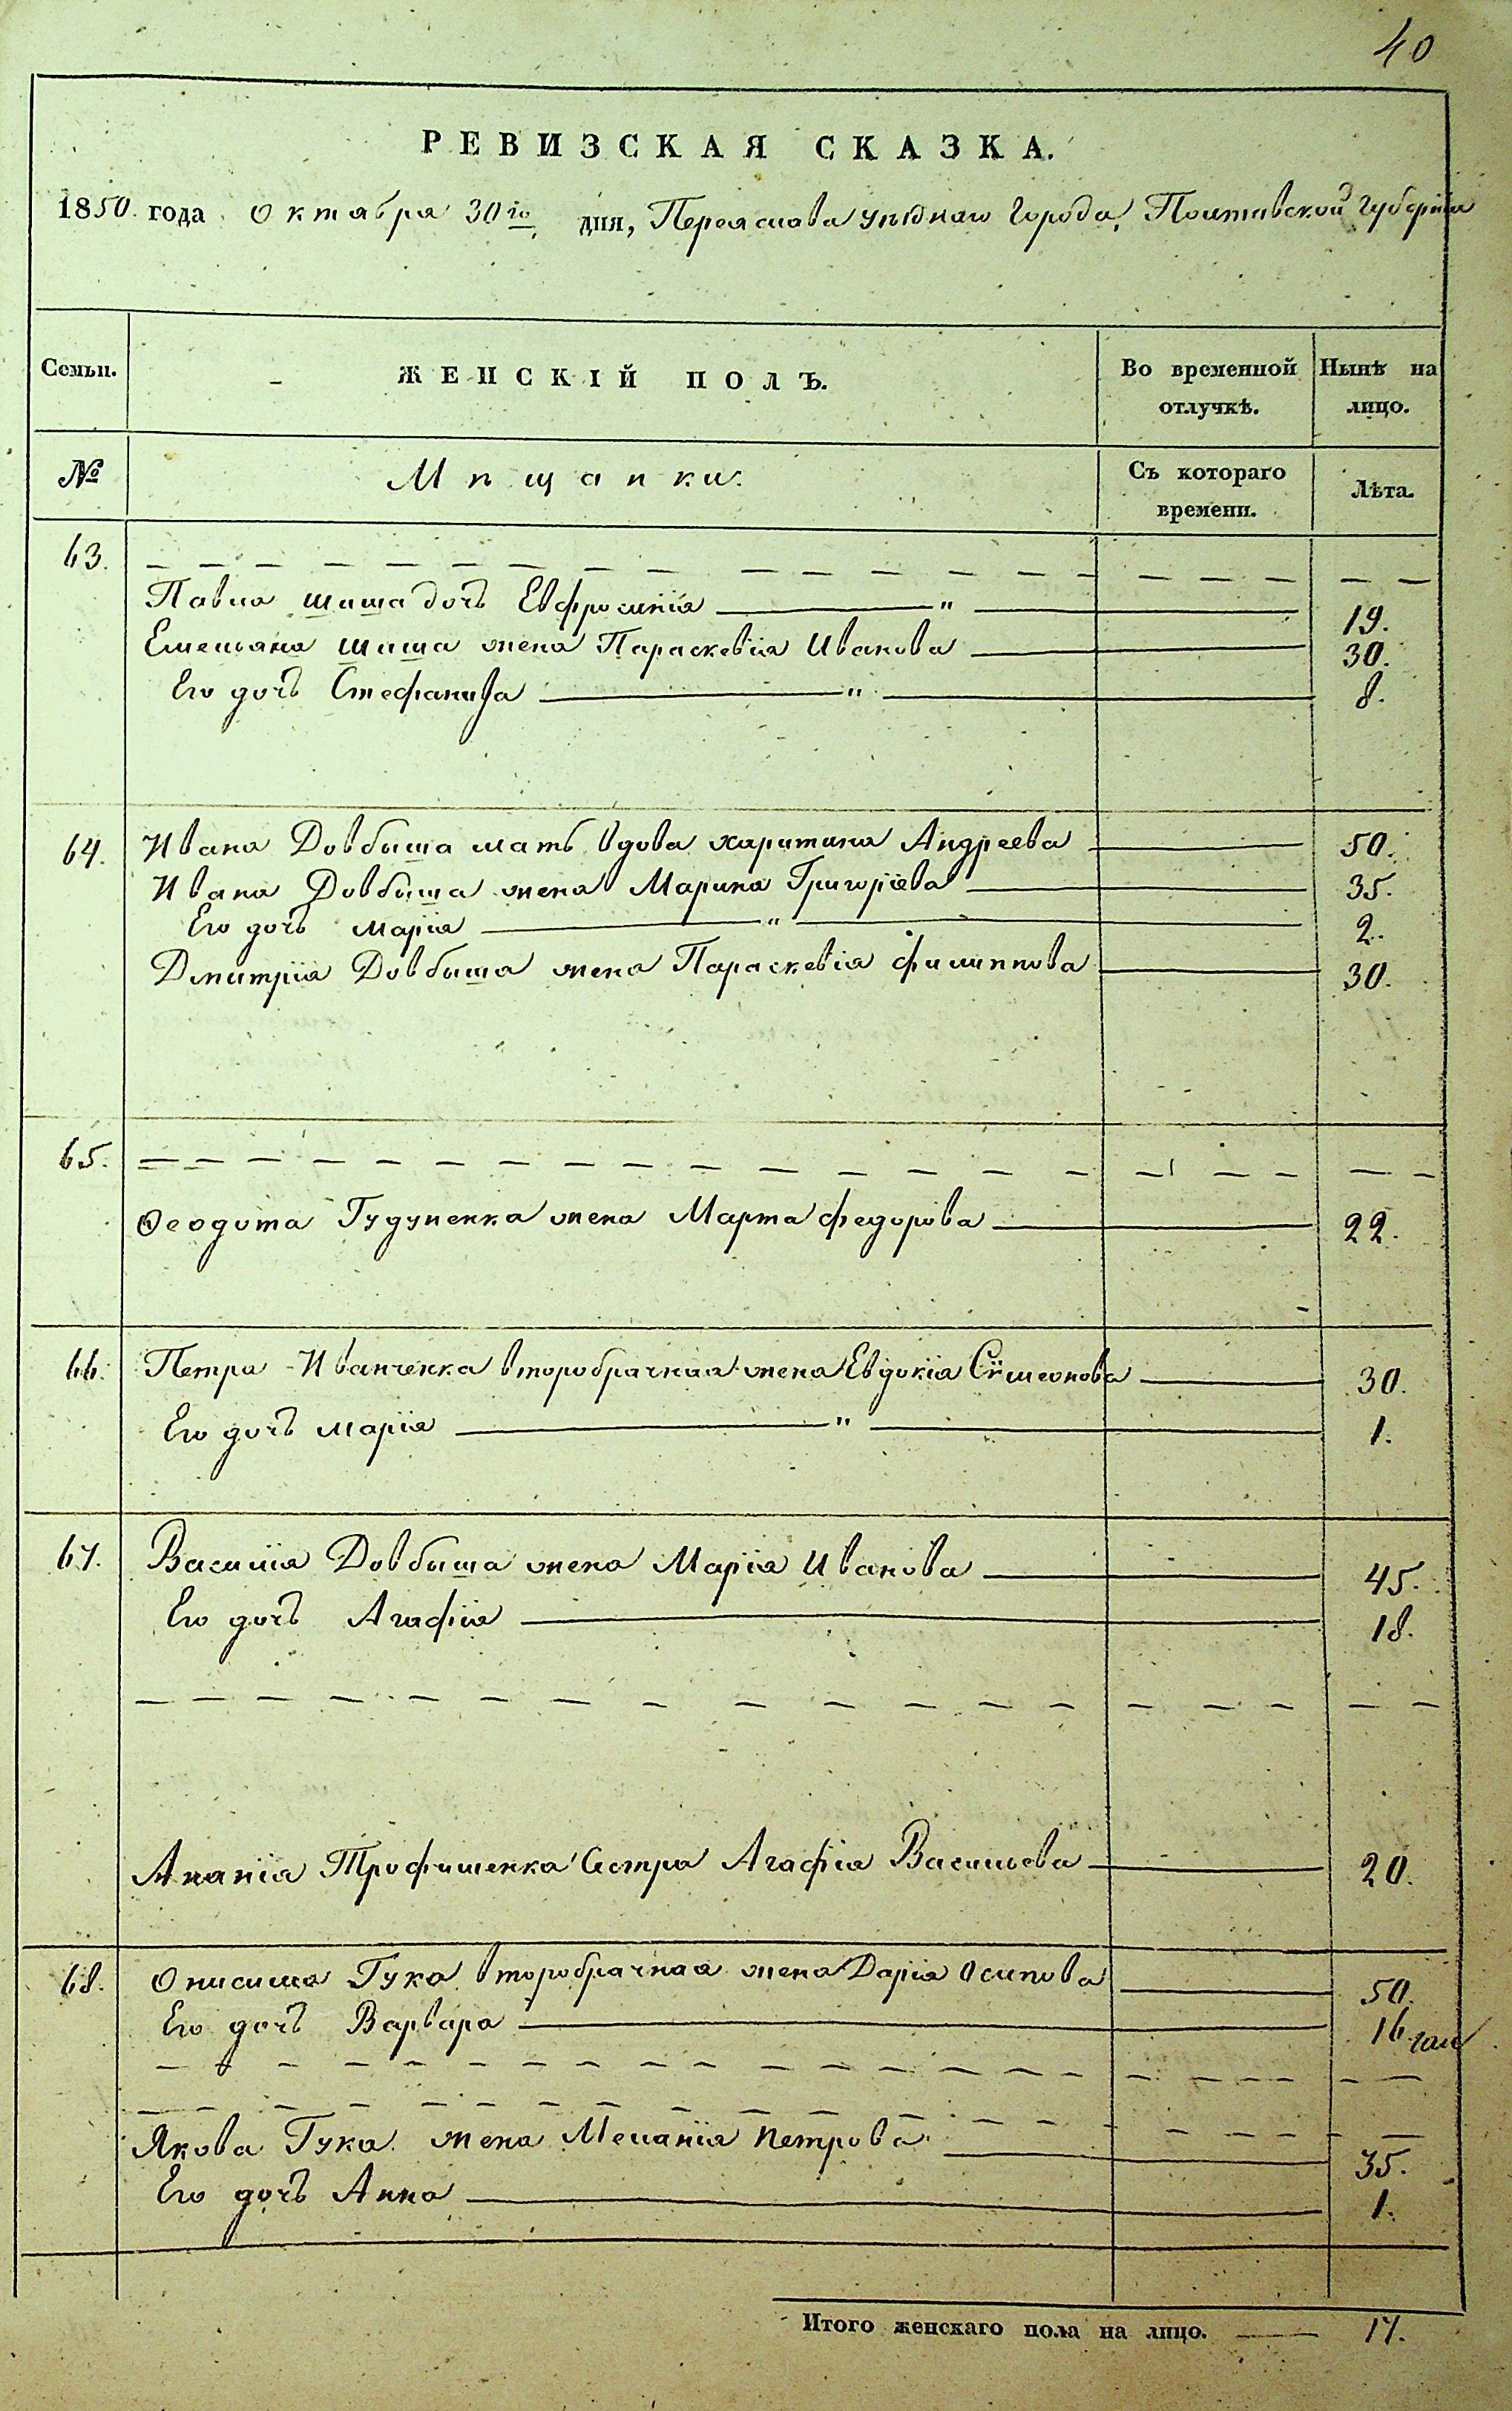 40
РЕВИЗСКАЯ СКАЗКА.
1850. года Октября 30го дня, Переяслова уѣзднаго Города, Полтавской Губерніи
Семьи.
ЖЕНСКІЙ ПОЛЪ.
Во временной отлучкѣ.
Нынѣ на лицо.
№
Мѣщанки.
Съ котораго времени.
Лѣта.
63.
Павла Шиша дочь Евфросинія — " — 19.
Емельяна Шиша жена Параскевія Иванова — 30.
Его дочь Стефанида — " — 8.
64. Ивана Довбыша мать вдова Харитина Андреева — 50.
Ивана Довбыша жена Марина Григоріева — 35.
Его дочь Марія — " — 2.
Дмитрія Довбыша жена Параскевія Филиппова — 30.
65.
Ѳеодота Гудименка жена Марта Федорова — 22.
66. Петра Иванченка второбрачная жена Евдокія Сѵмеонова — 30.
Его дочь Марія — " — 1.
67. Василія Довбыша жена Марія Иванова — 45.
Его дочь Агафія — 18.
Ананія Трофименка Сестра Агафія Васильева — 20.
68. Онисима Гука второбрачная жена Дарія Осипова — 50.
Его дочь Варвара — 16
Якова Гука жена Меланія Петрова — 35.
Его дочь Анна — 1.
Итого женскаго пола на лицо. — 17.